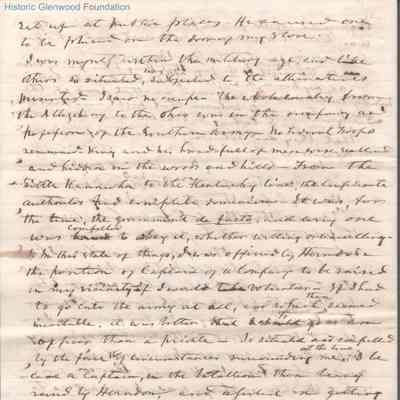 Historic Glenwood Foundation
set up at public places. He caused one
to be placed on the door of my store.
I was myself within the military age, and like
others so situated, was subjected to the alternatives
presented. I saw no escape. The whole country from
the Allegheny to the Ohio was in the occupancy or
possession of the Southern army. No Federal troops
remained. King and his handful of men were
and hidden in the woods and hills. From the
Little Kanawha to the Kentucky line, the confederate
authorities had complete dominion. It was, for
the time, the government de facto, and every one
was compelled to obey it, whether willing or unwilling.
In this state of things, I was offered by Herndon
the position of Captain of a Company to be raised
in my vicinity if I would take volunteers. If I had
to go into the army at all, and that then seemed
inevitable, it was better that I should go as an
officer than a private. So situated and compelled
by the force of circumstances surrounding me at the time, I be
came a Captain, in the Battalion then being
raised by Herndon, and assisted in getting